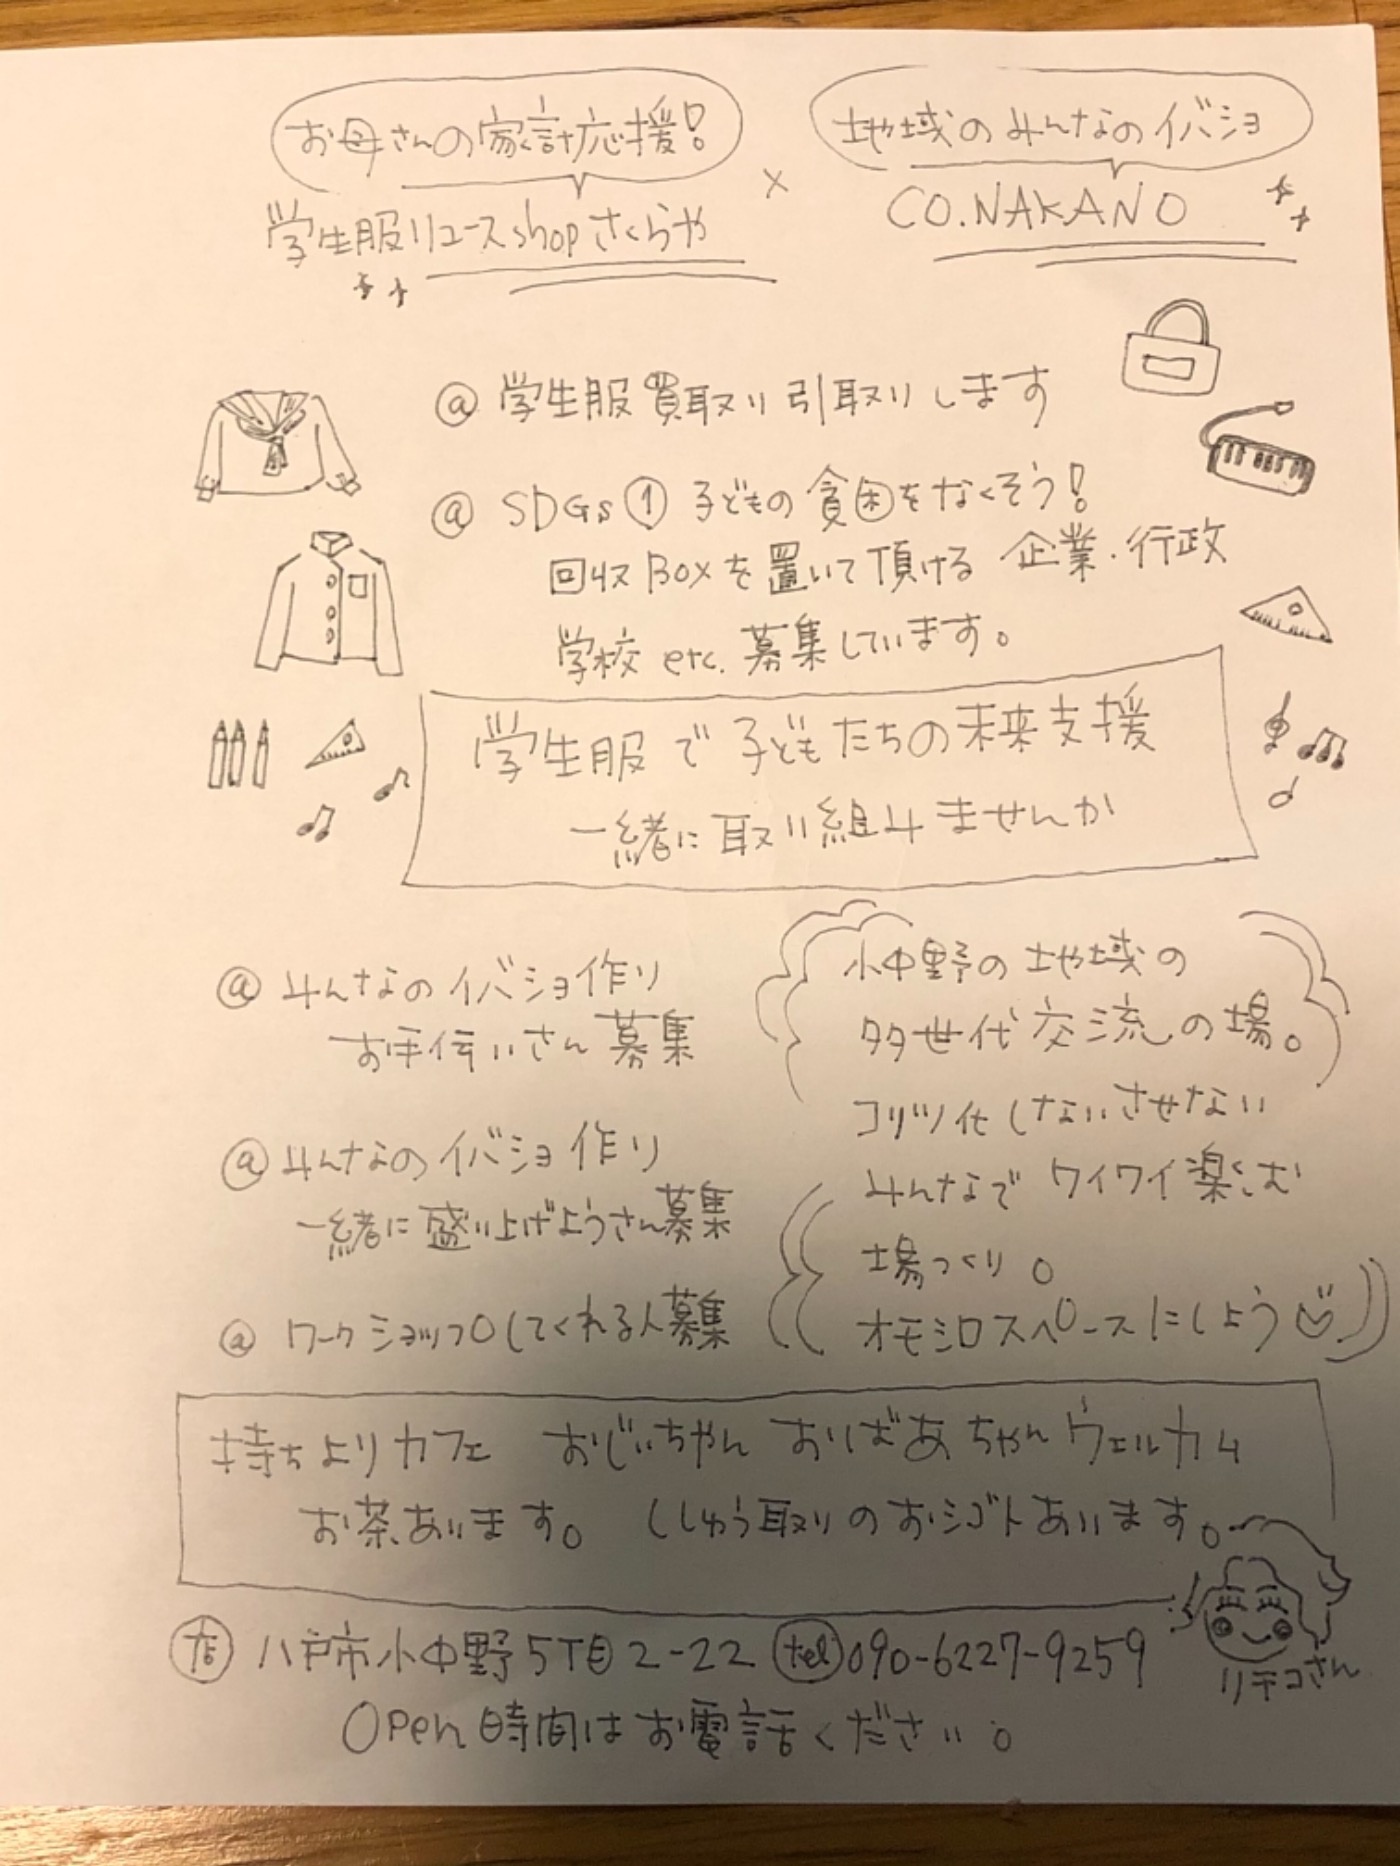 お母さんの家計応援!
学生服リユースshopさくらや
×
地域のみんなのイバショ
CO.NAKANO
@ 学生服買取り引取りします
@ SDGs① 子どもの貧困をなくそう!
回収BOXを置いて頂ける 企業・行政
学校 etc. 募集しています。
学生服で子どもたちの未来支援
一緒に取り組みませんか
@ みんなのイバショ作り
お手伝いさん募集
@ みんなのイバショ作り
一緒に盛り上げようさん募集
@ ワークショップしてくれる人募集
小中野の地域の
多世代交流の場。
コリツ化しないさせない
みんなで ワイワイ楽しむ
場つくり。
オモシロスペースにしよう
持ちよりカフェ おじいちゃん おばあちゃんウェルカム
お茶あります。 ししゅう取りのおシゴトあります。
店 八戸市小中野5丁目2-22 tel 090-6227-9259
Open時間はお電話ください。
リチコさん